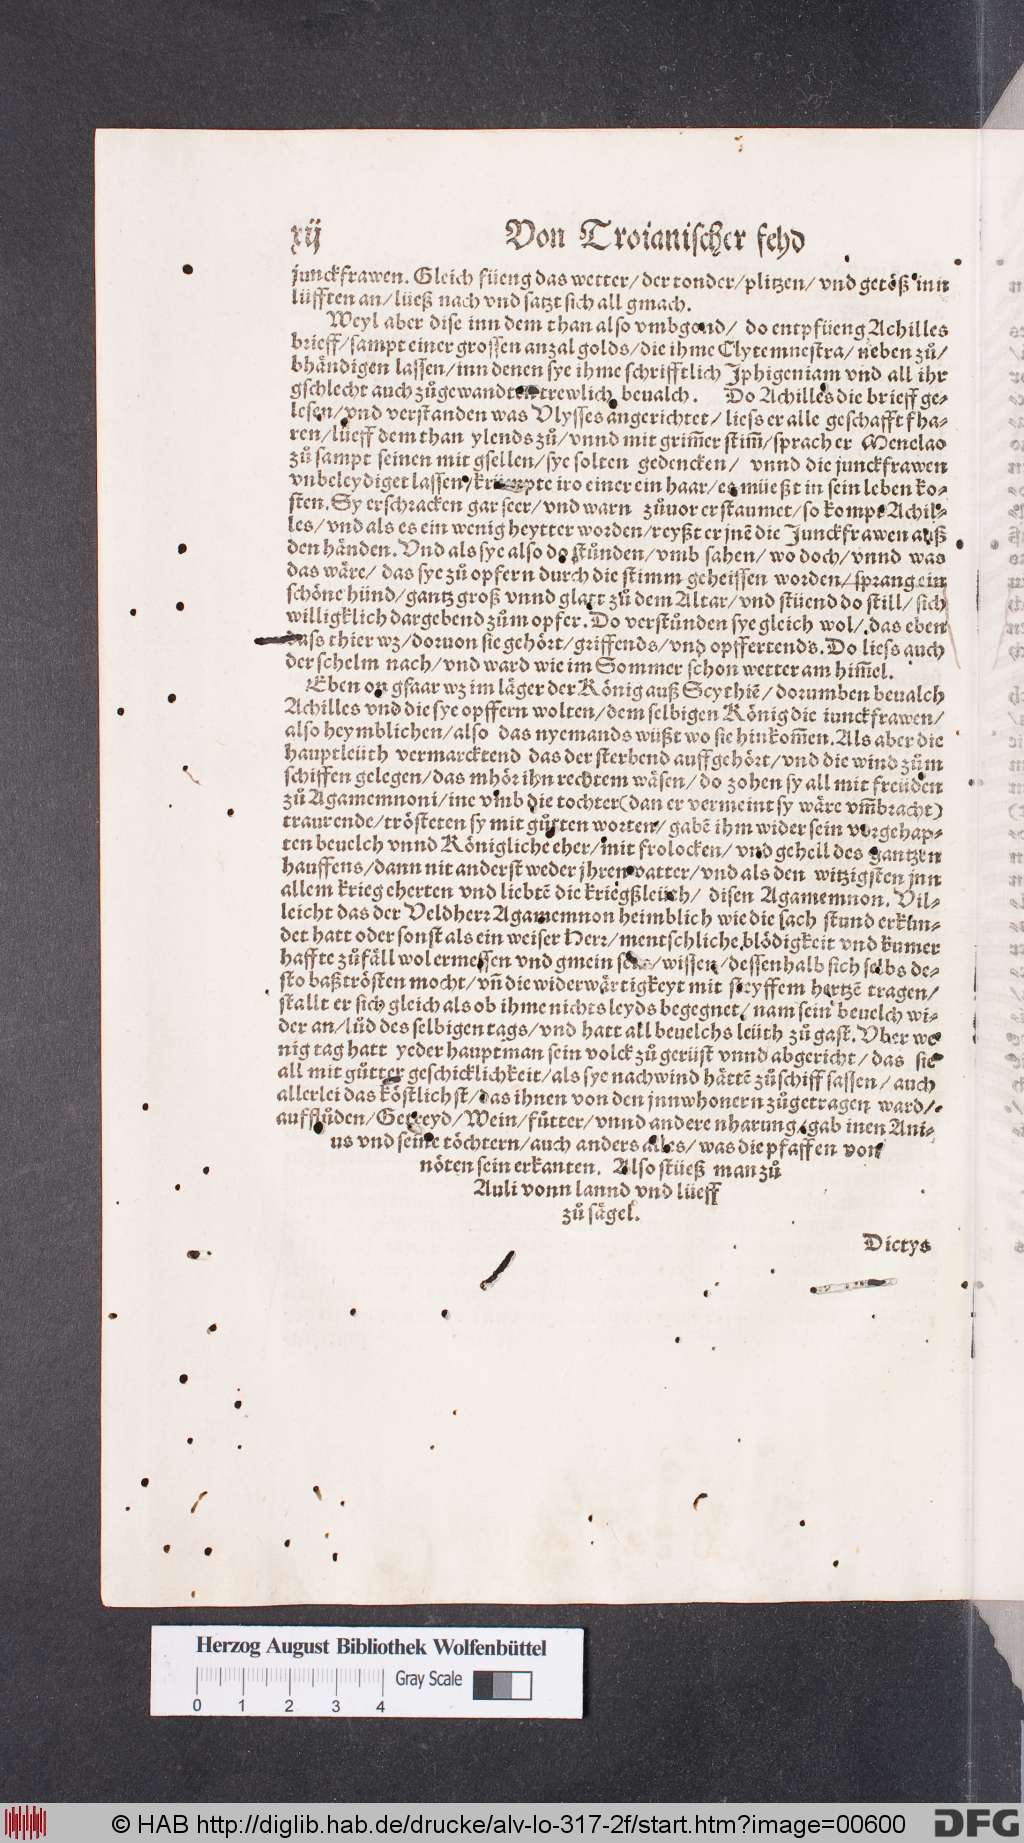 xij Von Troianischer fehd
junckfrawen. Gleich füeng das wetter/ der tonder/ plitzen/ vnd getöß inn
lüfften an/ lüeß nach vnd satzt sich all gmach.
Weyl aber dise inn dem than also vmbgond/ do entpfüeng Achilles
brieff/ sampt einer grossen anzal golds/ die ihme Clytemnestra/ neben zů/
bhändigen lassen/ inn denen sye ihme schrifftlich Iphigeniam vnd all ihr
gschlecht auch zůgewandten trewlich beualch. Do Achilles die brieff ge-
lesen/ vnd verstanden was Vlysses angerichtet/ liess er alle geschafft fha-
ren/ lüeff dem than ylends zů/ vnnd mit grim̃er stim̃/ sprach er Menelao
zů sampt seinen mit gsellen/ sye solten gedencken/ vnnd die junckfrawen
vnbeleydiget lassen/ krümpte iro einer ein haar/ es müeßt in sein leben ko-
sten. Sy erschracken gar seer/ vnd warn zůuor erstaumet/ so kompt Achil-
les/ vnd als es ein wenig heytter worden/ reyßt er jnē die Junckfrawen auß
den händen. Vnd als sye also do stůnden/ vmb sahen/ wo doch/ vnnd was
das wäre/ das sye zů opfern durch die stimm geheissen worden/ sprang ein
schöne hind/ gantz groß vnnd glatt zů dem Altar/ vnd stüend do still/ sich
willigklich dargebend zům opfer. Do verstůnden sye gleich wol/ das eben
dass thier wz/ doruon sie gehört/ griffends/ vnd opffertends. Do liess auch
der schelm nach/ vnd ward wie im Sommer schon wetter am him̃el.
Eben on gfaar wz im läger der König auß Scythiē/ dorumben beualch
Achilles vnd die sye opffern wolten/ dem selbigen König die iunckfrawen/
also heymblichen/ also das nyemands wüßt wo sie hinkom̃en. Als aber die
hauptleüth vermarcktend das der sterbend auffgehört/ vnd die wind zům
schiffen gelegen/ das mhör ihn rechtem wäsen/ do zohen sy all mit freüden
zů Agamemnoni/ ine vmb die tochter (dan er vermeint sy wäre vm̃bracht)
traurende/ trösteten sy mit gůtten worten/ gabē ihm wider sein vorgehap-
ten beuelch vnnd Königliche eher/ mit frolocken/ vnd gehell des gantzen
hauffens/ dann nit anderst weder jhren vatter/ vnd als den witzigsten jnn
allem krieg eherten vnd liebtē die kriegßleüth/ disen Agamemnon. Vil-
leicht das der Veldherr Agamemnon heimblich wie die sach stund erkun-
det hatt oder sonst als ein weiser Herr/ mentschliche blödigkeit vnd kumer
haffte zůfäll wol ermessen vnd gmein sein/ wissen/ dessenhalb sich selbs de-
sto baß trösten mocht/ vn̄ die widerwärtigkeyt mit steyffem hertzē tragen/
stallt er sich gleich als ob ihme nichts leyds begegnet/ nam sein beuelch wi-
der an/ lůd des selbigen tags/ vnd hatt all beuelchs leüth zů gast. Vber we
nig tag hatt yeder hauptman sein volck zů gerüst vnnd abgericht/ das sie
all mit gůtter geschicklichkeit/ als sye nachwind hättē zů schiff sassen/ auch
allerlei das köstlichst/ das ihnen von den jnnwhonern zůgetragen ward/
auffluden/ Getreyd/ Wein/ fůtter/ vnnd andere nharung/ gab inen Ani-
us vnd seine töchtern/ auch anders alles/ was die pfaffen von
nöten sein erkanten. Also stüeß man zů
Auli vonn lannd vnd lüeff
zů sägel.
Dictys
Herzog August Bibliothek Wolfenbüttel
Gray Scale
0 1 2 3 4
© HAB http://diglib.hab.de/drucke/alv-lo-317-2f/start.htm?image=00600 DFG